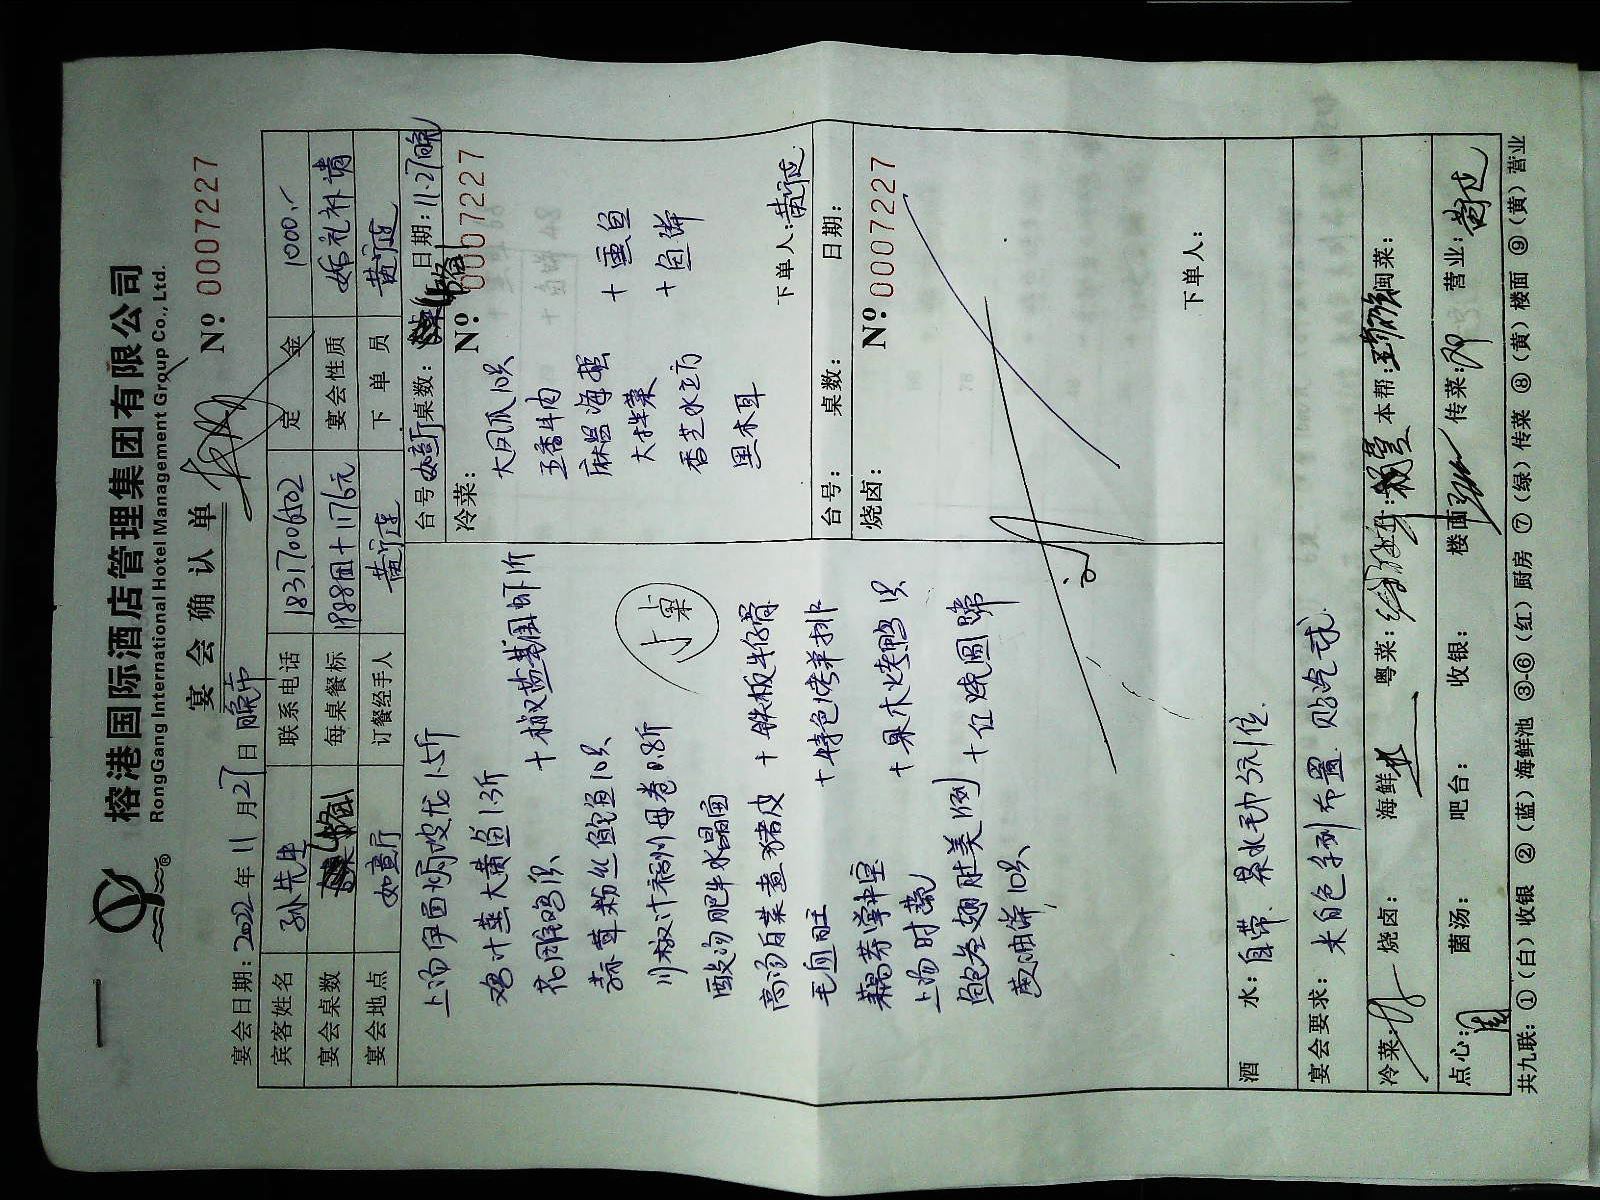 榕港国际酒店管理集团有限公司
RongGang International Hotel Management Group Co., Ltd.
宴会确认单
Nº 0007227
宴会日期: 2022年11月27日 晚市
宾客姓名 孙先生 联系电话 18317006502 定金 1000.-
宴会桌数 每桌餐标 1988团+1176元 宴会性质 婚礼补请
宴会地点 如意厅 订餐经手人 下单员
台号: 如意厅 桌数: 日期: 11.27晚
上汤伊面焗波龙1.5斤
鸡汁蒸大黄鱼1.3斤
花雕鸡1只 +椒盐基围虾1斤
蒜茸粉丝鲍鱼10只
川椒汁福州母卷0.8斤
小桌
酸汤肥牛水晶面
高汤白菜煮猪皮 +铁板牛仔骨
毛血旺 +特色烤羊排
藕荠掌中宝 +果木烤鸭1只
上汤时蔬
+红烧圆蹄
黄油饼10只
冷菜: Nº 0007227
大凤爪10只
五香牛肉
麻酱海蜇 +熏鱼
大拌菜
香芝水立方
黑木耳
下单人:
台号: 桌数: 日期:
烧卤: Nº 0007227
下单人:
酒水: 自带. 茶水毛巾5元1位.
宴会要求: 米白色系列布置 贴汽球.
冷菜: 烧卤: 海鲜: 粤菜: 本帮: 闽菜:
点心: 菌汤: 吧台: 收银: 楼面: 传菜: 营业:
共九联: ①(白)收银 ②(蓝)海鲜池 ③-⑥(红)厨房 ⑦(绿)传菜 ⑧(黄)楼面 ⑨(黄)营业